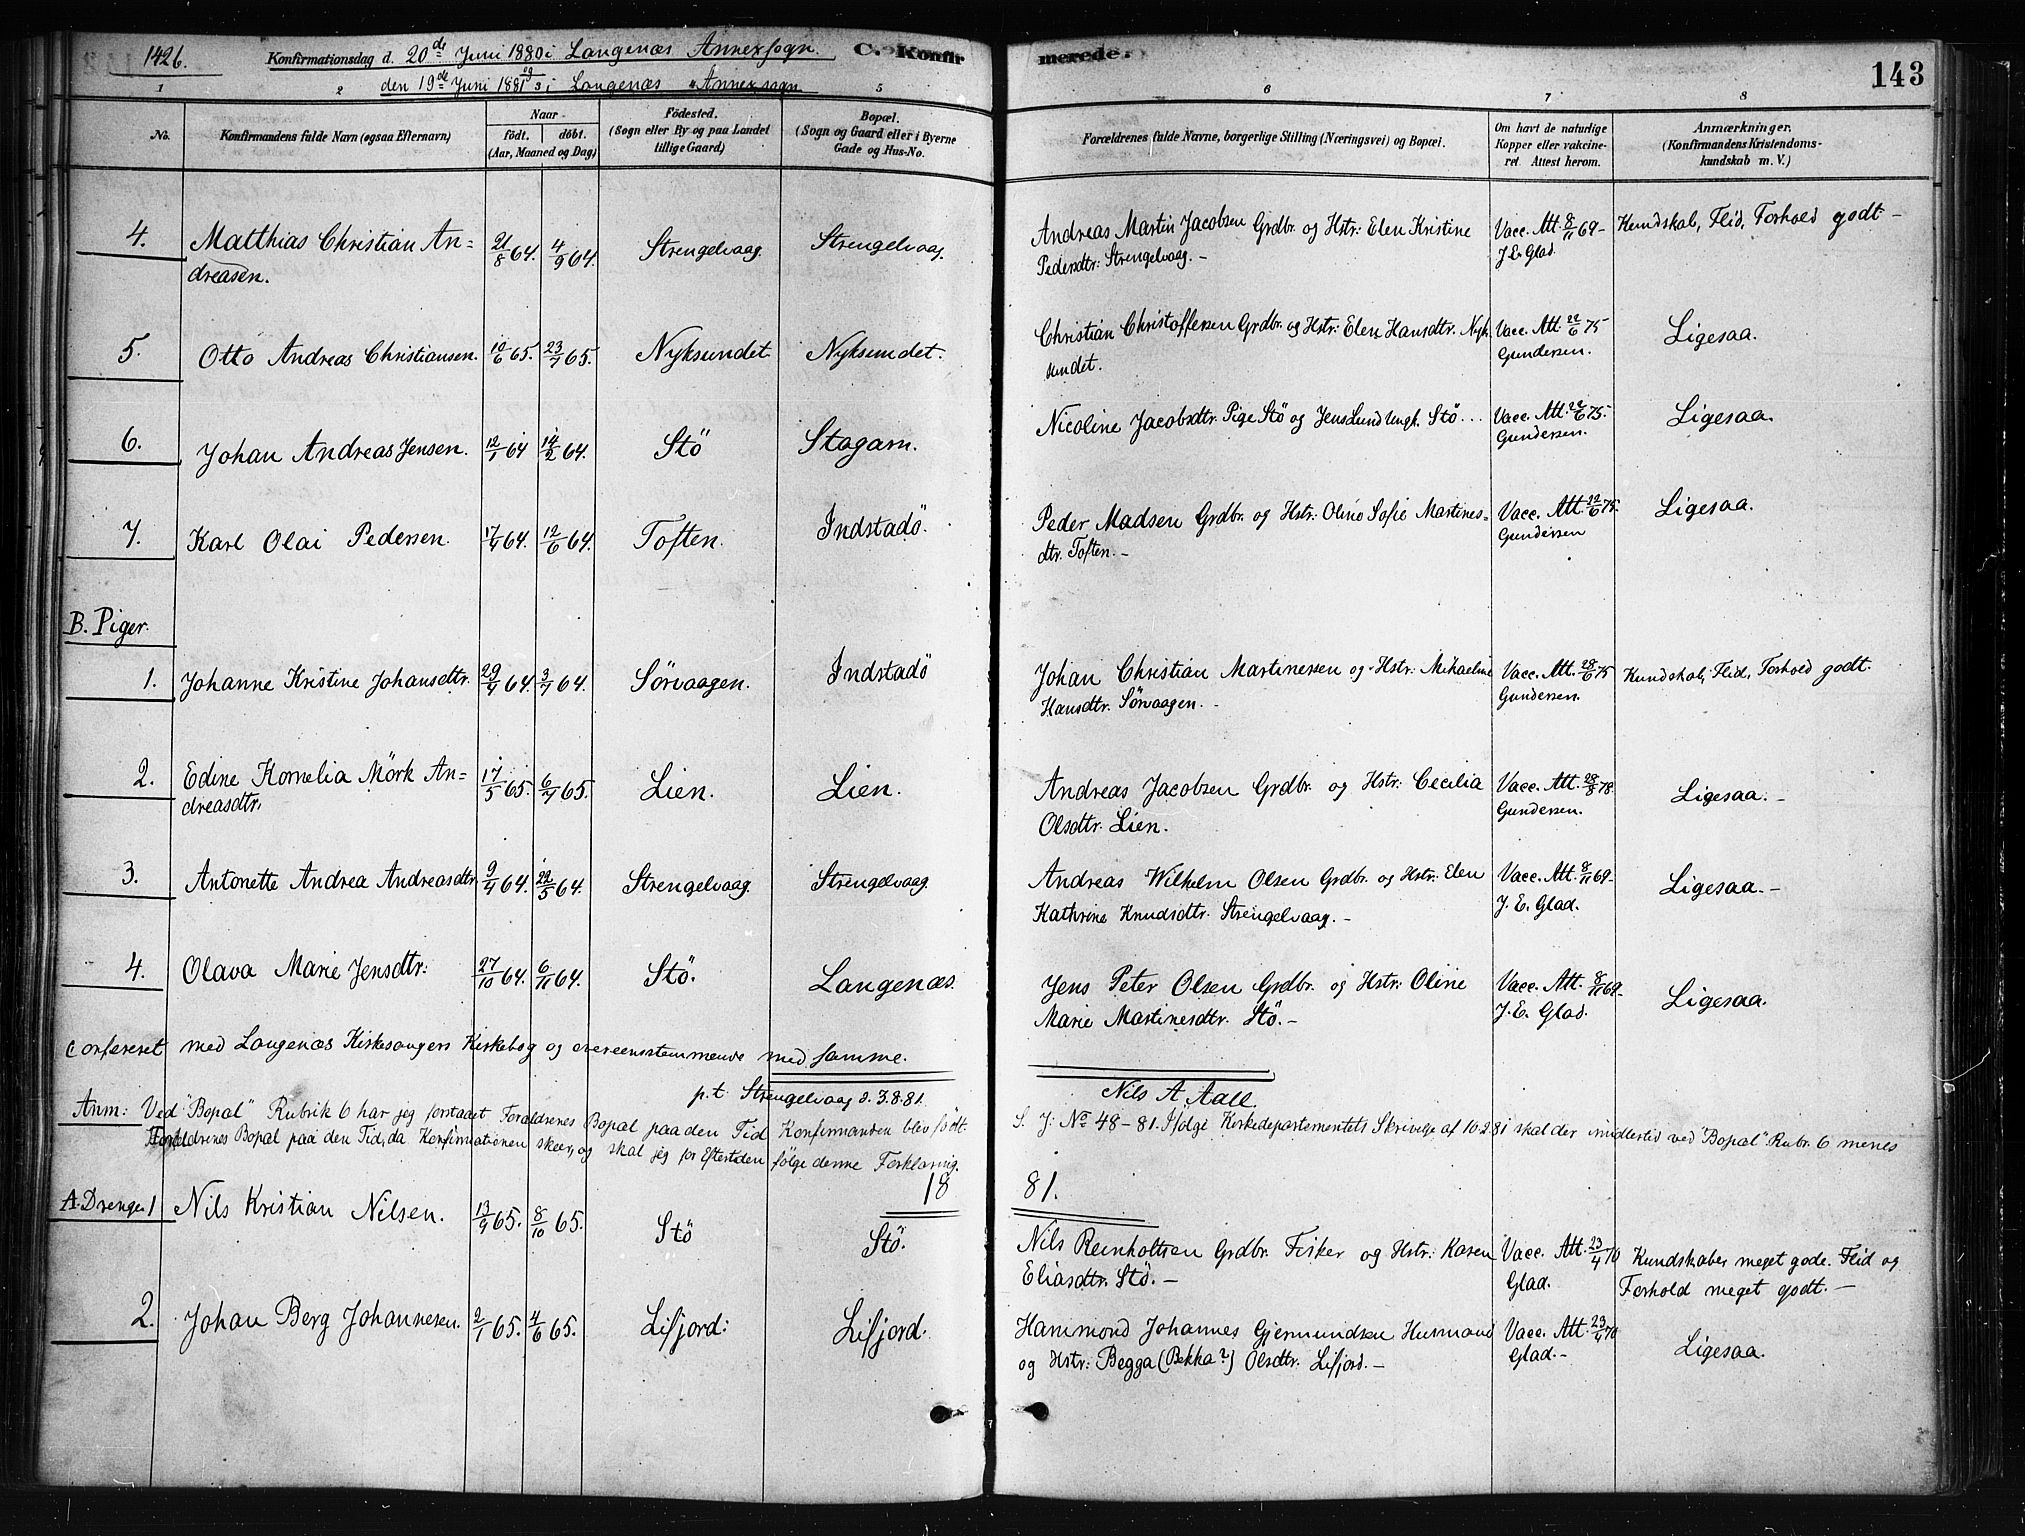 142b.
Konfirmationsdag d. 20de Juni 1880 i Langenæs Annexsogn. C. Konfir merede. 143
den 19de Juni 1881 i Langenæs Annexsogn
1 2 3 5 6 7 8
No. Konfirmandens fulde Navn (ogsaa Efternavn) Naar födt. döbt. (Aar, Maaned og Dag) Födested. (Sogn eller By og paa Landet tillige Gaard) Bopæl. (Sogn og Gaard eller i Byerne Gade og Hus-No. Forældrenes fulde Navne, borgerlige Stilling (Næringsvei) og Bopæl. Om havt de naturlige Kopper eller vakcineret. Attest herom. Anmærkninger. (Konfirmandens Kristendomskundskab m. V.)
4. Matthias Christian An- 21/8 64. 4/9 64. Strengelvaag. Strengelvaag. Andreas Martin Jacobsen Grdbr. og Hstr. Elen Kristine Vacc. Att. 8/11 69- Kundskab, Flid, Forhold godt -
dreasen. Pedersdtr: Strengelvaag. - J. E. Glad.
5. Otto Andreas Christiansen. 10/6 65. 23/7 65. Nyksundet. Nyksundet. Christian Christoffersen Grdbr. og Hstr: Elen Hansdtr. Nyk- Vacc. Att. 22/6 75 Ligesaa.
sundet. Gundersen.
6. Johan Andreas Jensen. 12/1 64 14/2 64. Stö Stagarn. Nicoline Jacobsdtr. Pige Stö og Jens Lund Ungk. Stö... Vacc. Att. 22/6 75. Ligesaa.
Gundersen.
7. Karl Olai Pedersen. 17/4 64. 12/6 64. Toften. Indstadö. Peder Madsen Grdbr. og Hstr: Oline Sofie Martines- Vacc. Att. 22/6 75. Ligesaa.
dtr. Toften. - Gundersen
B. Piger.
1. Johanne Kristine Johansdtr. 29/4 64. 3/7 64. Sörvaagen. Indstadö Johan Christian Martinersen og Hstr. Mikaeline Vacc. Att. 28/6 75 Kundskab, Flid, Forhold godt.
Hansdtr. Sörvaagen. - Gundersen.
2. Edine Kornelia Mörk An- 17/5 65. 6/7 65. Lien. Lien. Andreas Jacobsen Grdbr. og Hstr: Cecilia Vacc. Att. 28/8 78. Ligesaa. -
dreasdtr. Olsdtr. Lien. Gundersen.
3. Antonette Andrea Andreasdtr. 9/4 64. 22/5 64. Strengelvaag. Strengelvaag. Andreas Wilhelm Olsen Grdbr. og Hstr: Elen Vacc. Att. 8/11 69- Ligesaa. -
Kathrine Knudsdtr. Strengelvaag. - J. E. Glad.
4. Olava Marie Jensdtr: 27/10 64. 6/11 64. Stö. Langenæs. Jens Peter Olsen Grdbr. og Hstr: Oline Vacc. Att. 8/11 69- Ligesaa.
Marie Martinesdtr. Stö. - J. E. Glad.
Confereret med Langenæs Kirkesangers Kirkebog og overeensstemmende med samme.
p.t. Strengelvaag d. 3.8.81. Nils A. Aall.
Anm: Ved "Bopal" Rubrik 6 har jeg forstaaet Foraldrenes Bopal paa den Tid Konfirmanden blev födt. S. J. No 48-81. Ifölge Kirkedepartementets Skrivelse af 10 2 81 skal der imidlertid ved "Bopal" Rubr. 6 menes
Foraldrenes Bopal paa den Tid, da Konfirmationen skeer, og skal jeg for Eftertiden fölge denne Forklaring.
18 81.
A. Drenge 1 Nils Kristian Nilsen. 13/9 65. 8/10 65. Stö Stö. Nils Reinholtsen Grdbr. Fisker og Hstr: Karen Vacc. Att. 23/4 70 Kundskaber meget gode. Flid og
Eliasdtr. Stö. - Glad. Forhold meget godt. -
2. Johan Berg Johannesen. 2/1 65. 4/6 65. Lifjord: Lifjord. Hammond Johannes Gjermundsen Husmand Vacc. Att. 23/4 70 Ligesaa.
og Hstr: Begga (Bekka?) Olsdtr. Lifjord. - Glad. -